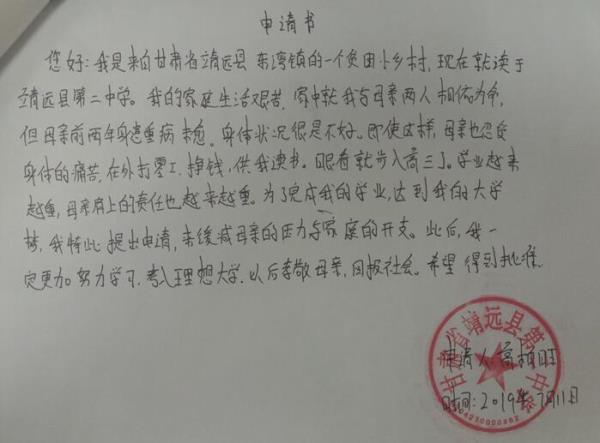 申请书
您好:我是来自甘肃省靖远县东湾镇的一个贫困小乡村,现在就读于
靖远县第二中学。我的家庭生活艰苦,家中就我与母亲两人相依为命,
但母亲前两年身患重病未愈。身体状况很是不好。即使这样,母亲也忍受
身体的痛苦,在外打零工,挣钱,供我读书。眼看就步入高三了。学业越来
越重,母亲肩上的责任也越来越重。为了完成我的学业,达到我的大学
梦,我特此提出申请,来缓减母亲的压力与家庭的开支。此后,我一
定更加努力学习,考入理想大学,以后孝敬母亲,回报社会。希望得到批准
申请人:高
时间:2019年7月11日
甘肃省靖远县第二中学